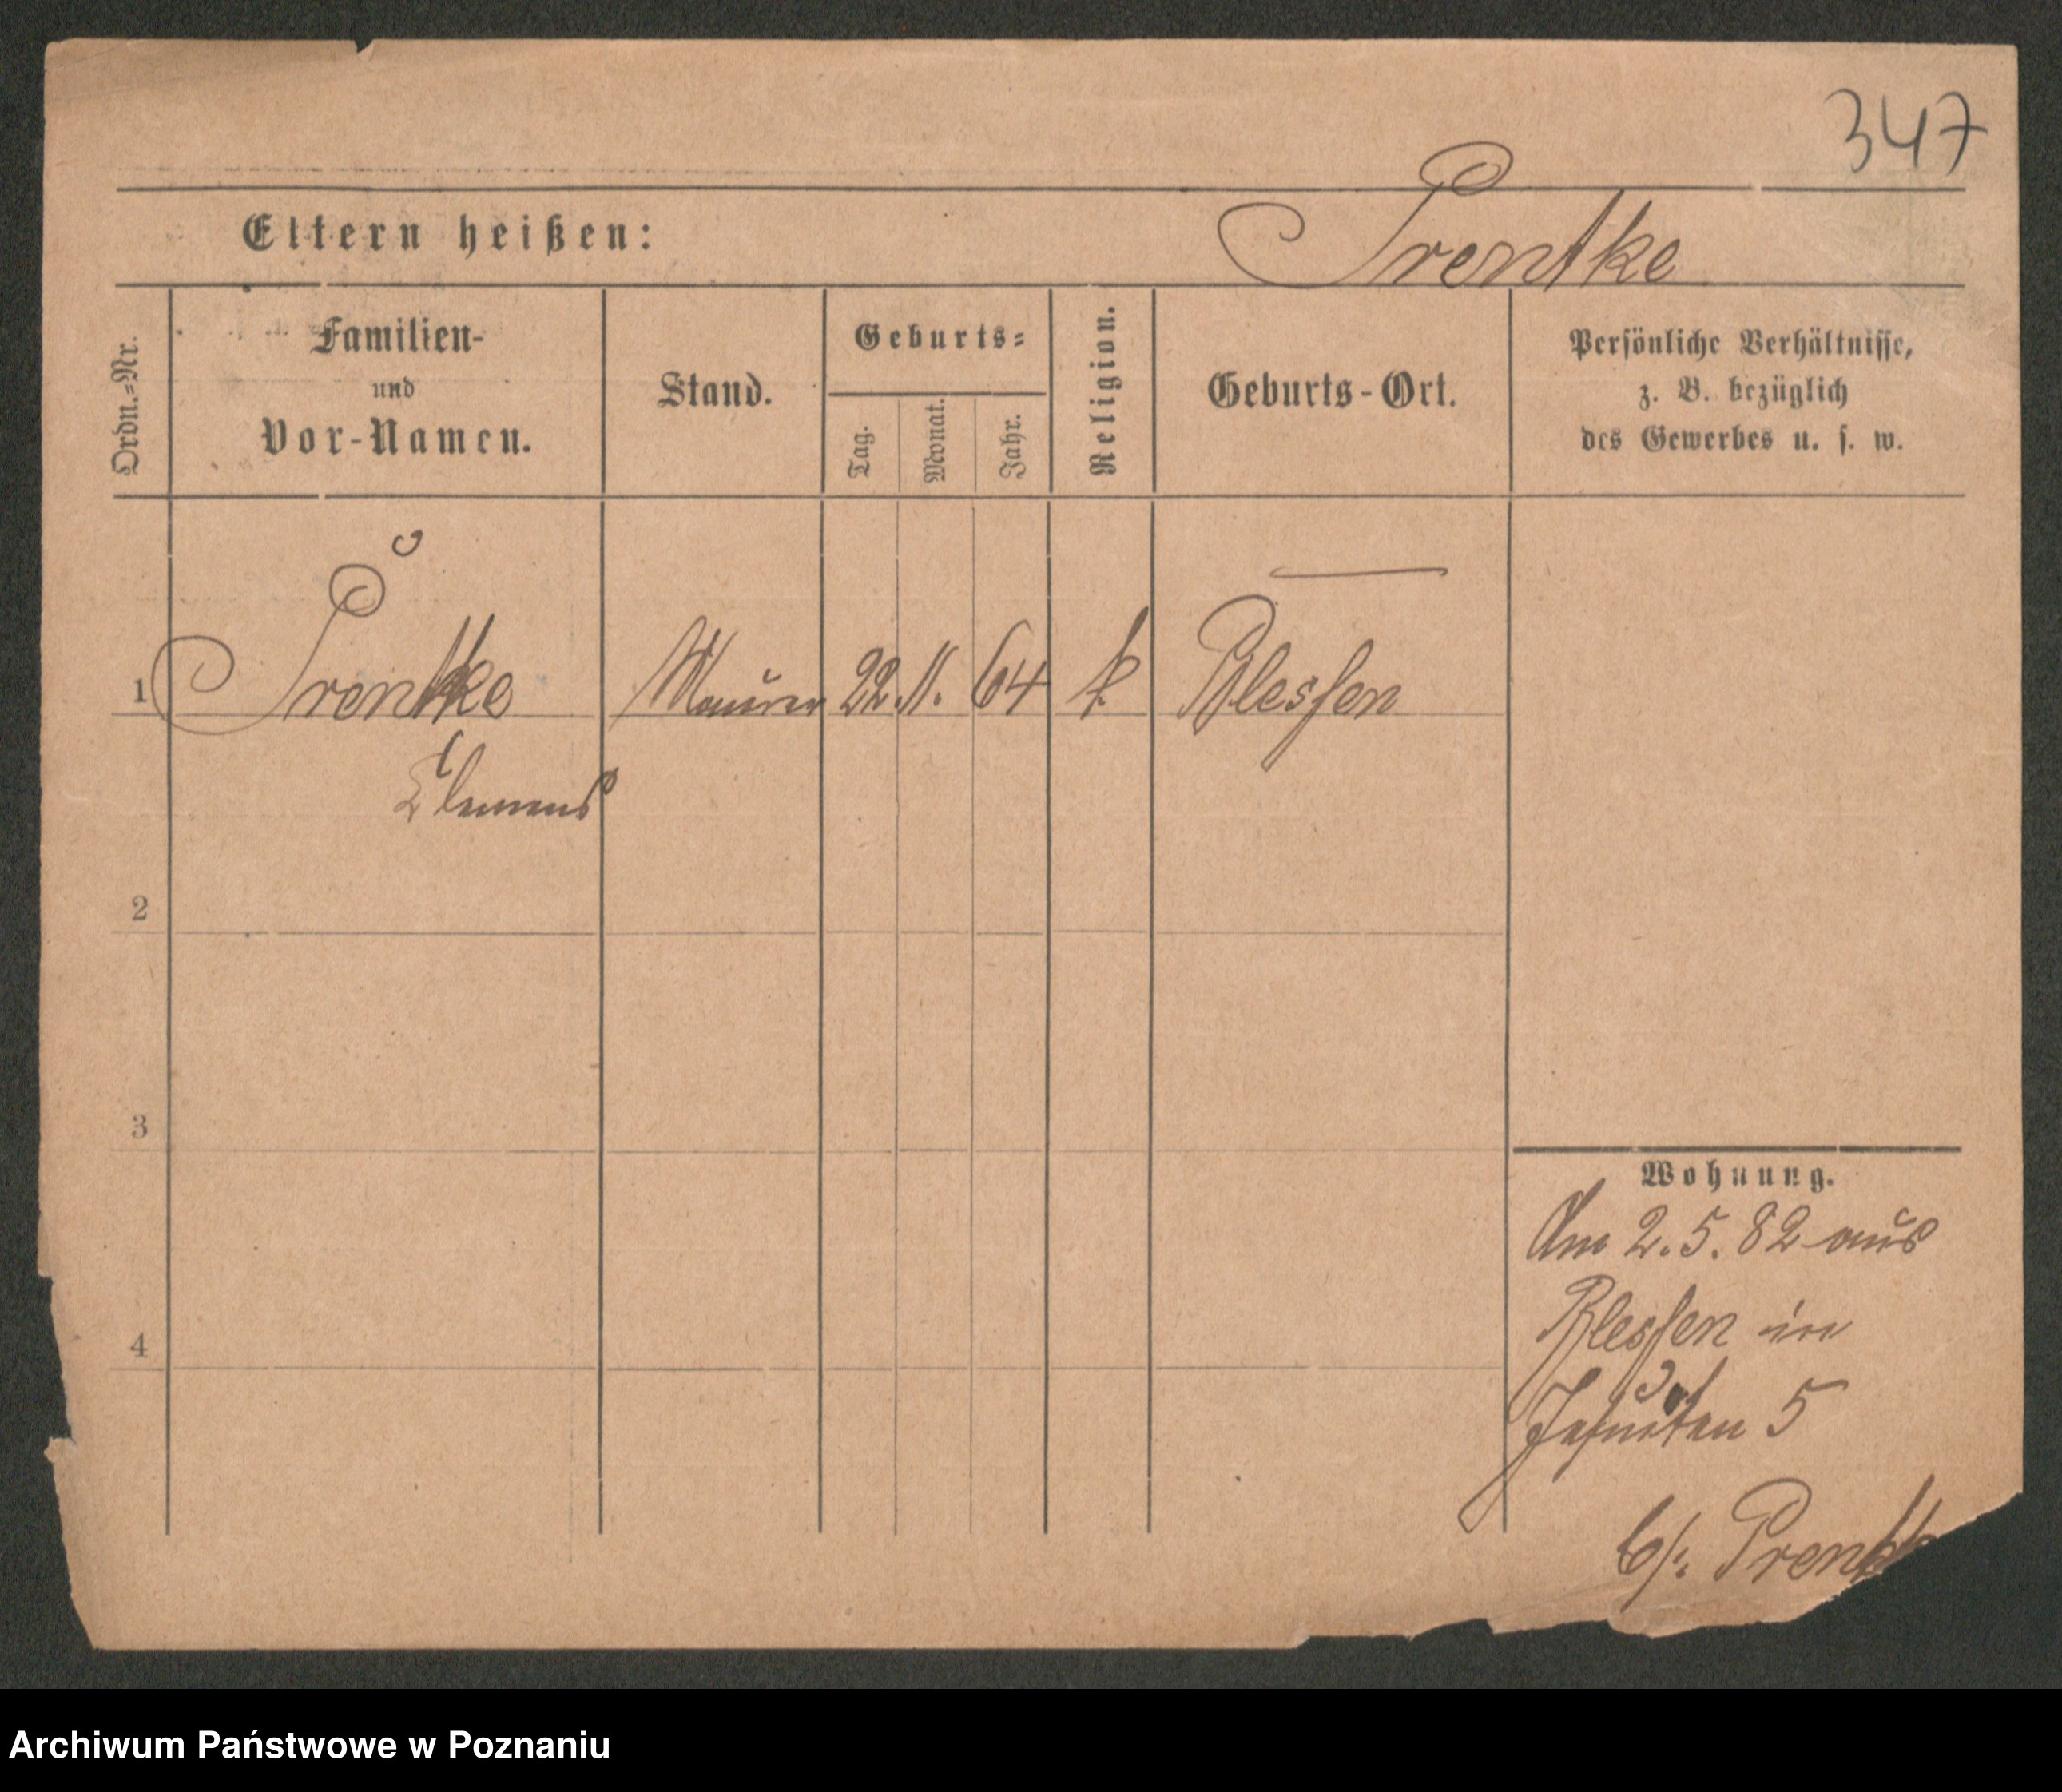 347
Eltern heißen: Prentke
Ordn.-Nr.
Familien-
und
Vor-Namen.
Stand.
Geburts-
Tag.
Monat.
Jahr.
Religion.
Geburts-Ort.
Persönliche Verhältnisse,
z. B. bezüglich
des Gewerbes u. s. w.
1 Prentke Maurer 22. 11. 64 k Blessen
Clemens
2
3
4
Wohnung.
Am 2. 5. 82 aus
Blessen in
Jesuiten 5
b/: Prentk
Archiwum Państwowe w Poznaniu